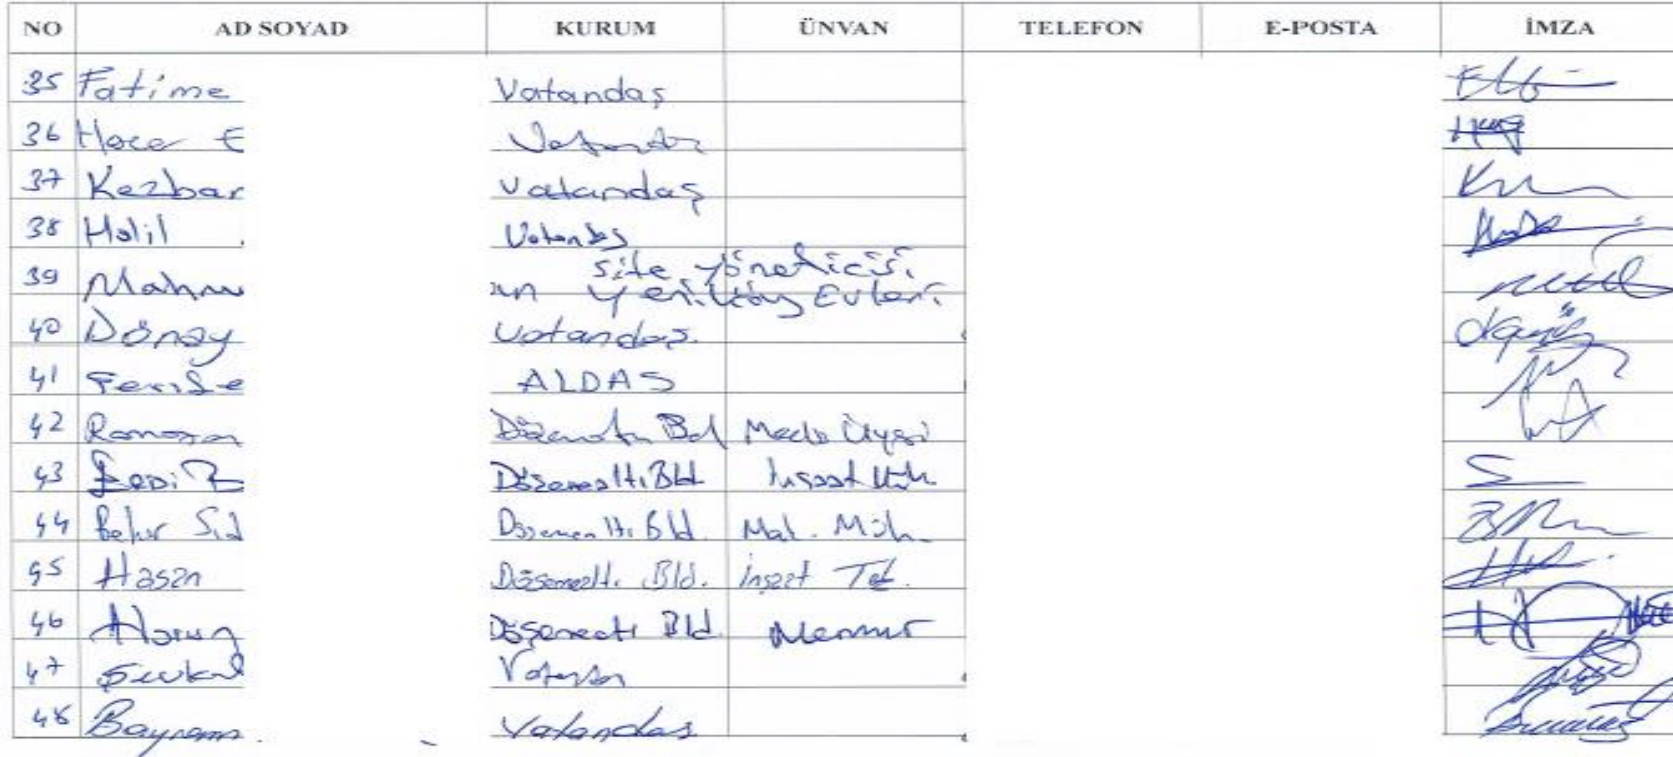 NO AD SOYAD KURUM ÜNVAN TELEFON E-POSTA İMZA
35 Fatime Vatandaş
36 Hacer E Vatandaş
37 Kezbar Vatandaş
38 Halil Vatandaş
39 Mahmu Site Yöneticisi
Yeniköy Evleri
40 Dönay Vatandaş
41 Feride ALDAŞ
42 Ramazan Döşemealtı Bld Meclis Üyesi
43 Döşemealtı Bld İnşaat Müh.
44 Bekir Sıd Döşemealtı Bld. Mak. Müh.
45 Hasan Döşemealtı Bld. İnşaat Tek.
46 Harun Döşemealtı Bld. Memur
47 Şevket Vatandaş
48 Bayram Vatandaş